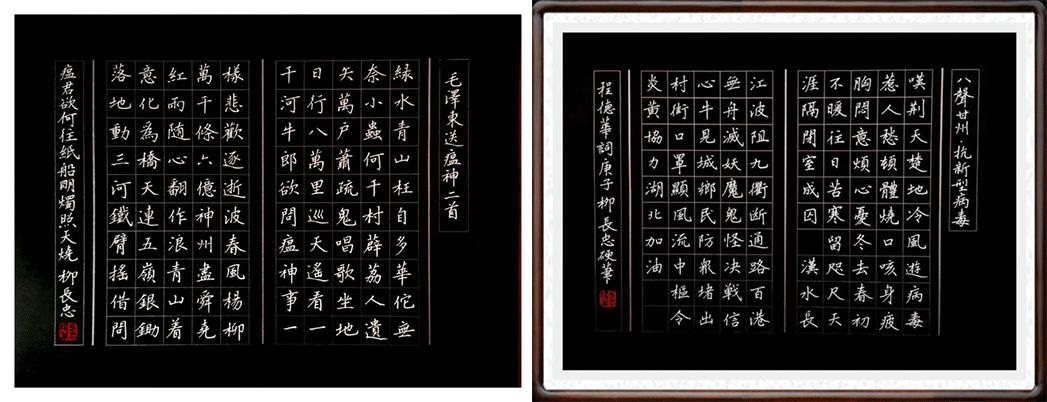 毛澤東送瘟神二首
綠水青山枉自多華佗無
奈小蟲何千村薜荔人遺
矢萬户蕭疏鬼唱歌坐地
日行八萬里巡天遙看一
千河牛郎欲問瘟神事一
樣悲歡逐逝波春風楊柳
萬千條六億神州盡舜堯
紅雨隨心翻作浪青山着
意化為橋天連五嶺銀鋤
落地動三河鐵臂搖借問
瘟君欲何往紙船明燭照天燒 柳長忠
八聲甘州·抗新型病毒
嘆荆天楚地冷風遊病毒
惹人愁頓體燒口咳身疲
胸悶意煩心憂冬去春初
不暖往日苦寒留咫尺天
涯隔閉室成囚 漢水長
江波阻九衢断通路百港
無舟滅妖魔鬼怪决戰信
心牛見城鄉民防眾堵出
村街口罩顯風流中樞令
炎黄協力湖北加油
程德華詞庚子柳長忠硬筆